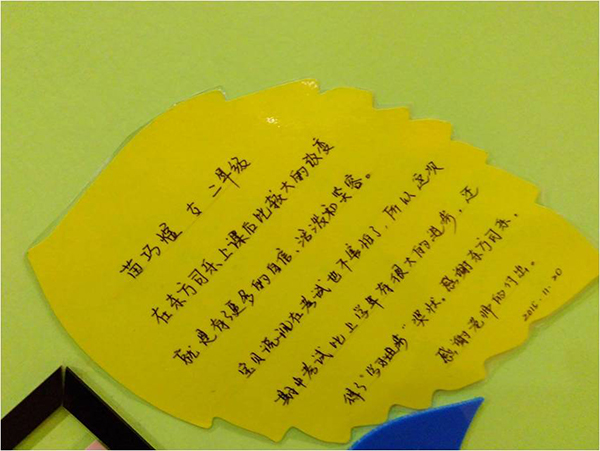 苗巧煊 女 二年级
在东方司乐上课后比较大的改变
就是有了更多的自信、活泼和笑容。
宝贝说现在考试也不害怕了,所以这次
期中考试比上学年有很大的进步,还
得了“学习进步”奖状。感谢东方司乐,
感谢老师的付出。
2015.11.20